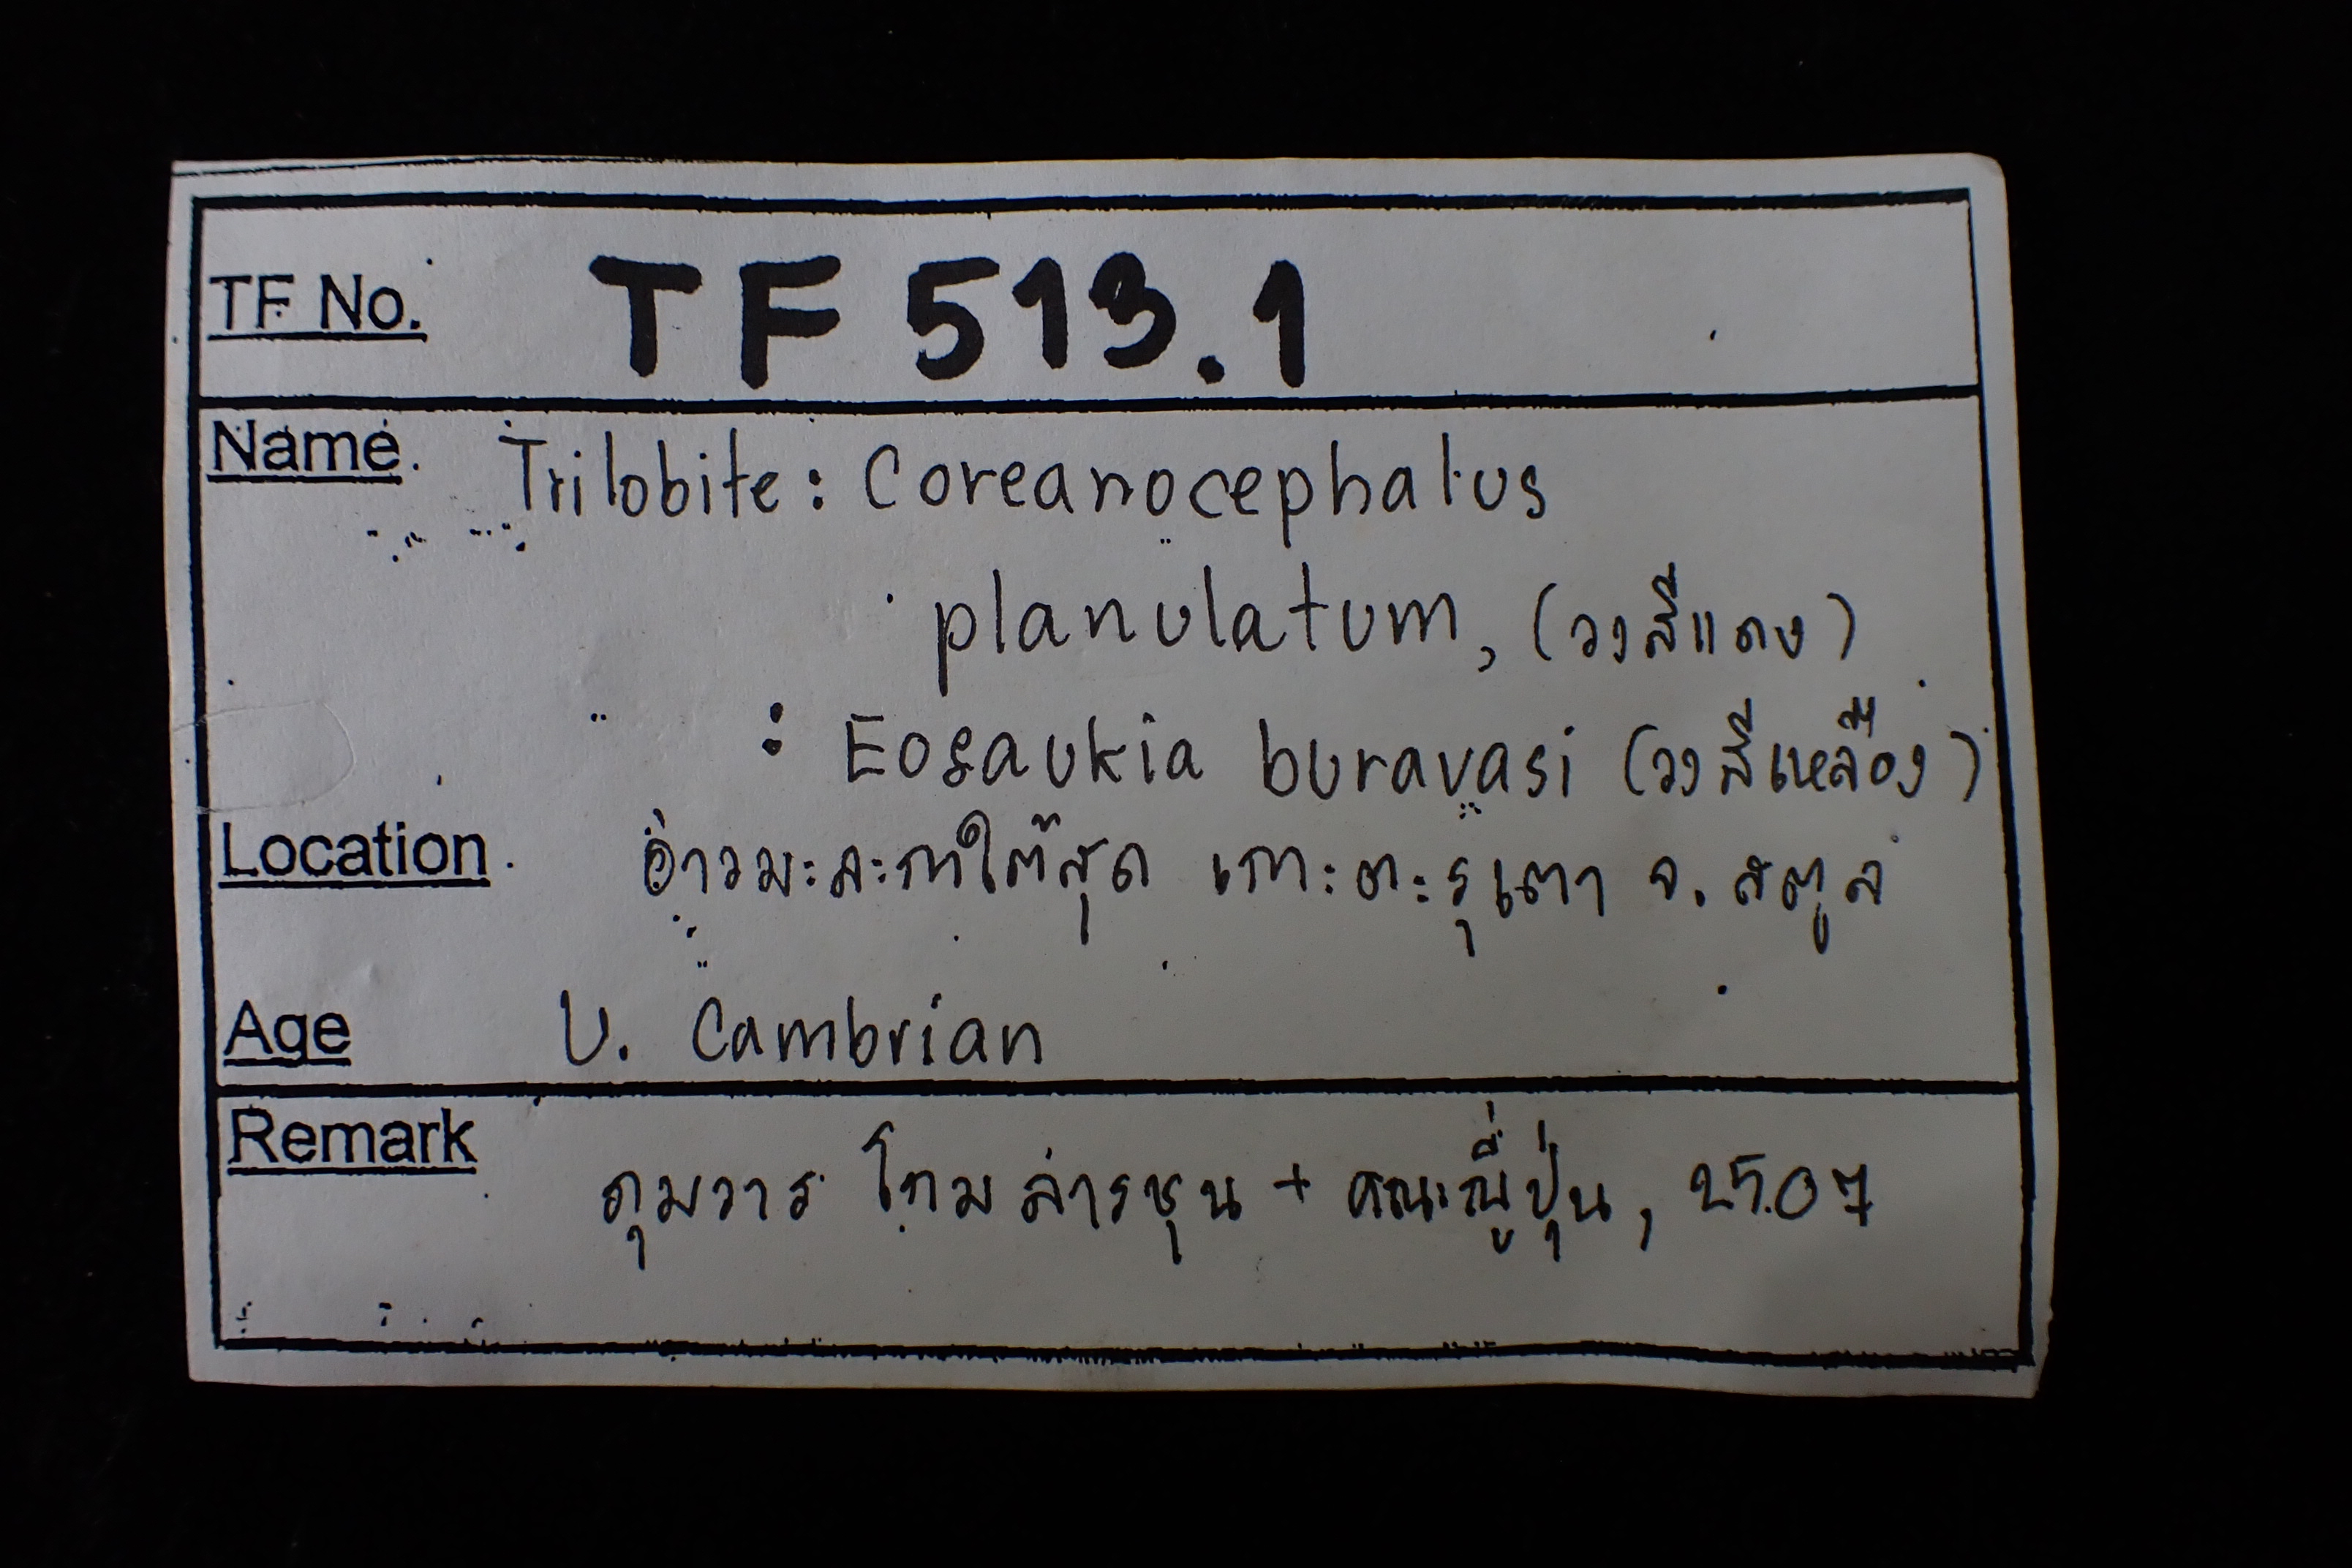 TF No. TF 513.1
Name. Trilobite: Coreanocephalus
planulatum, (วงสีแดง)
: Eosaukia buravasi (วงสีเหลือง)
Location อ่าวมะละกาใต้สุด เกาะตะรุเตา จ. สตูล
Age U. Cambrian
Remark กุมวาร โกมลารชุน + คณะญี่ปุ่น, 2507